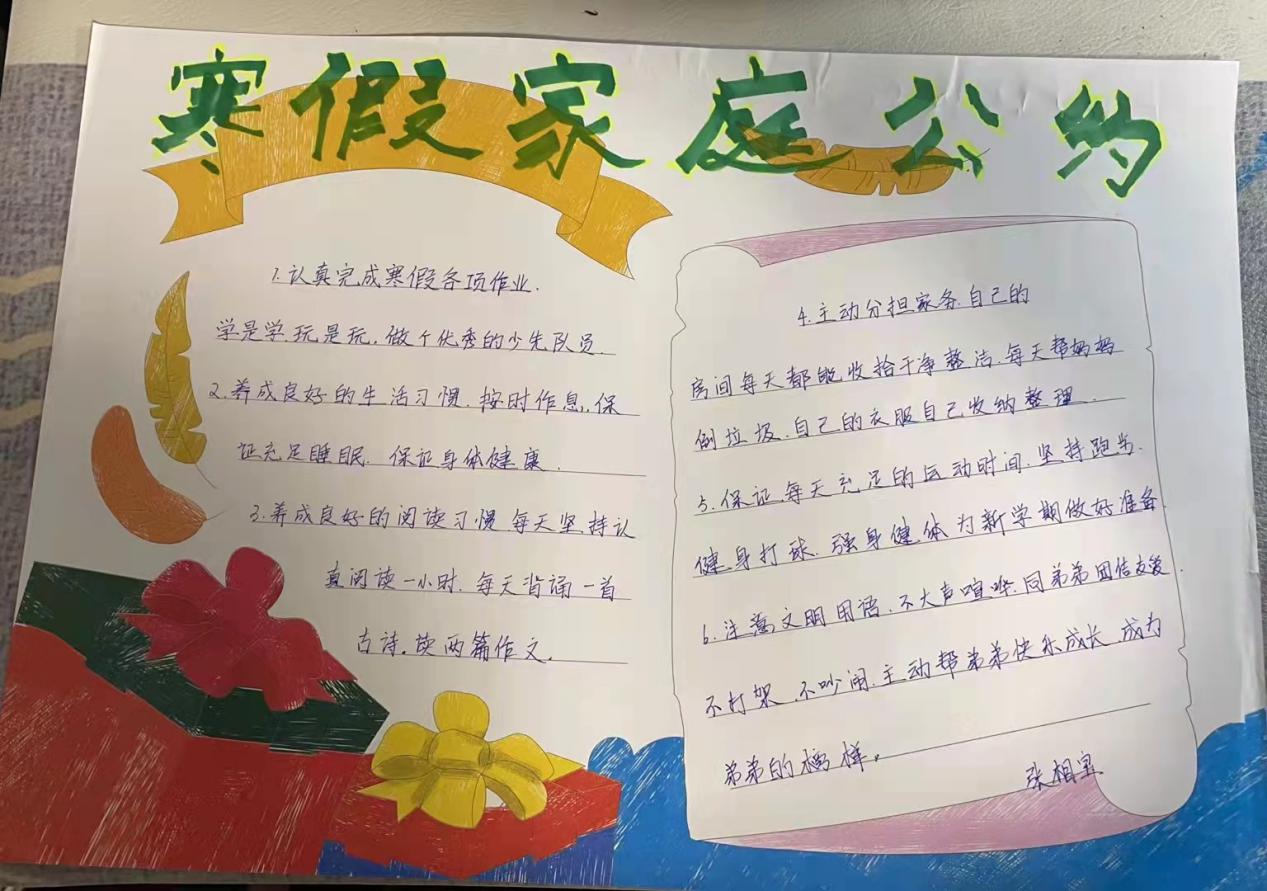 寒假家庭公约
1.认真完成寒假各项作业.
学是学.玩是玩.做个优秀的少先队员.
2.养成良好的生活习惯.按时作息,保
证充足睡眠.保证身体健康.
3.养成良好的阅读习惯.每天坚持认
真阅读一小时.每天背诵一首
古诗.读两篇作文.
4.主动分担家务.自己的
房间每天都能收拾干净整洁.每天帮妈妈
倒垃圾.自己的衣服自己收纳整理.
5.保证每天充足的运动时间.坚持跑步.
健身打球.强身健体为新学期做好准备
6.注意文明用语.不大声喧哗.同弟弟团结友爱.
不打架.不吵闹.主动帮弟弟快乐成长.成为
弟弟的榜样。
张相宜